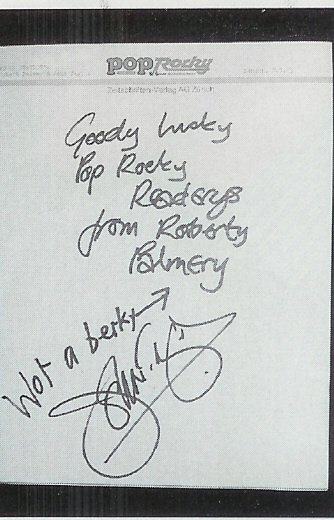 pop Rocky
Zeitschriften-Verlag AG Zürich
Goody Lucky
Pop Rocky
Readerys
from Roberty
Palmery
Wot a berky